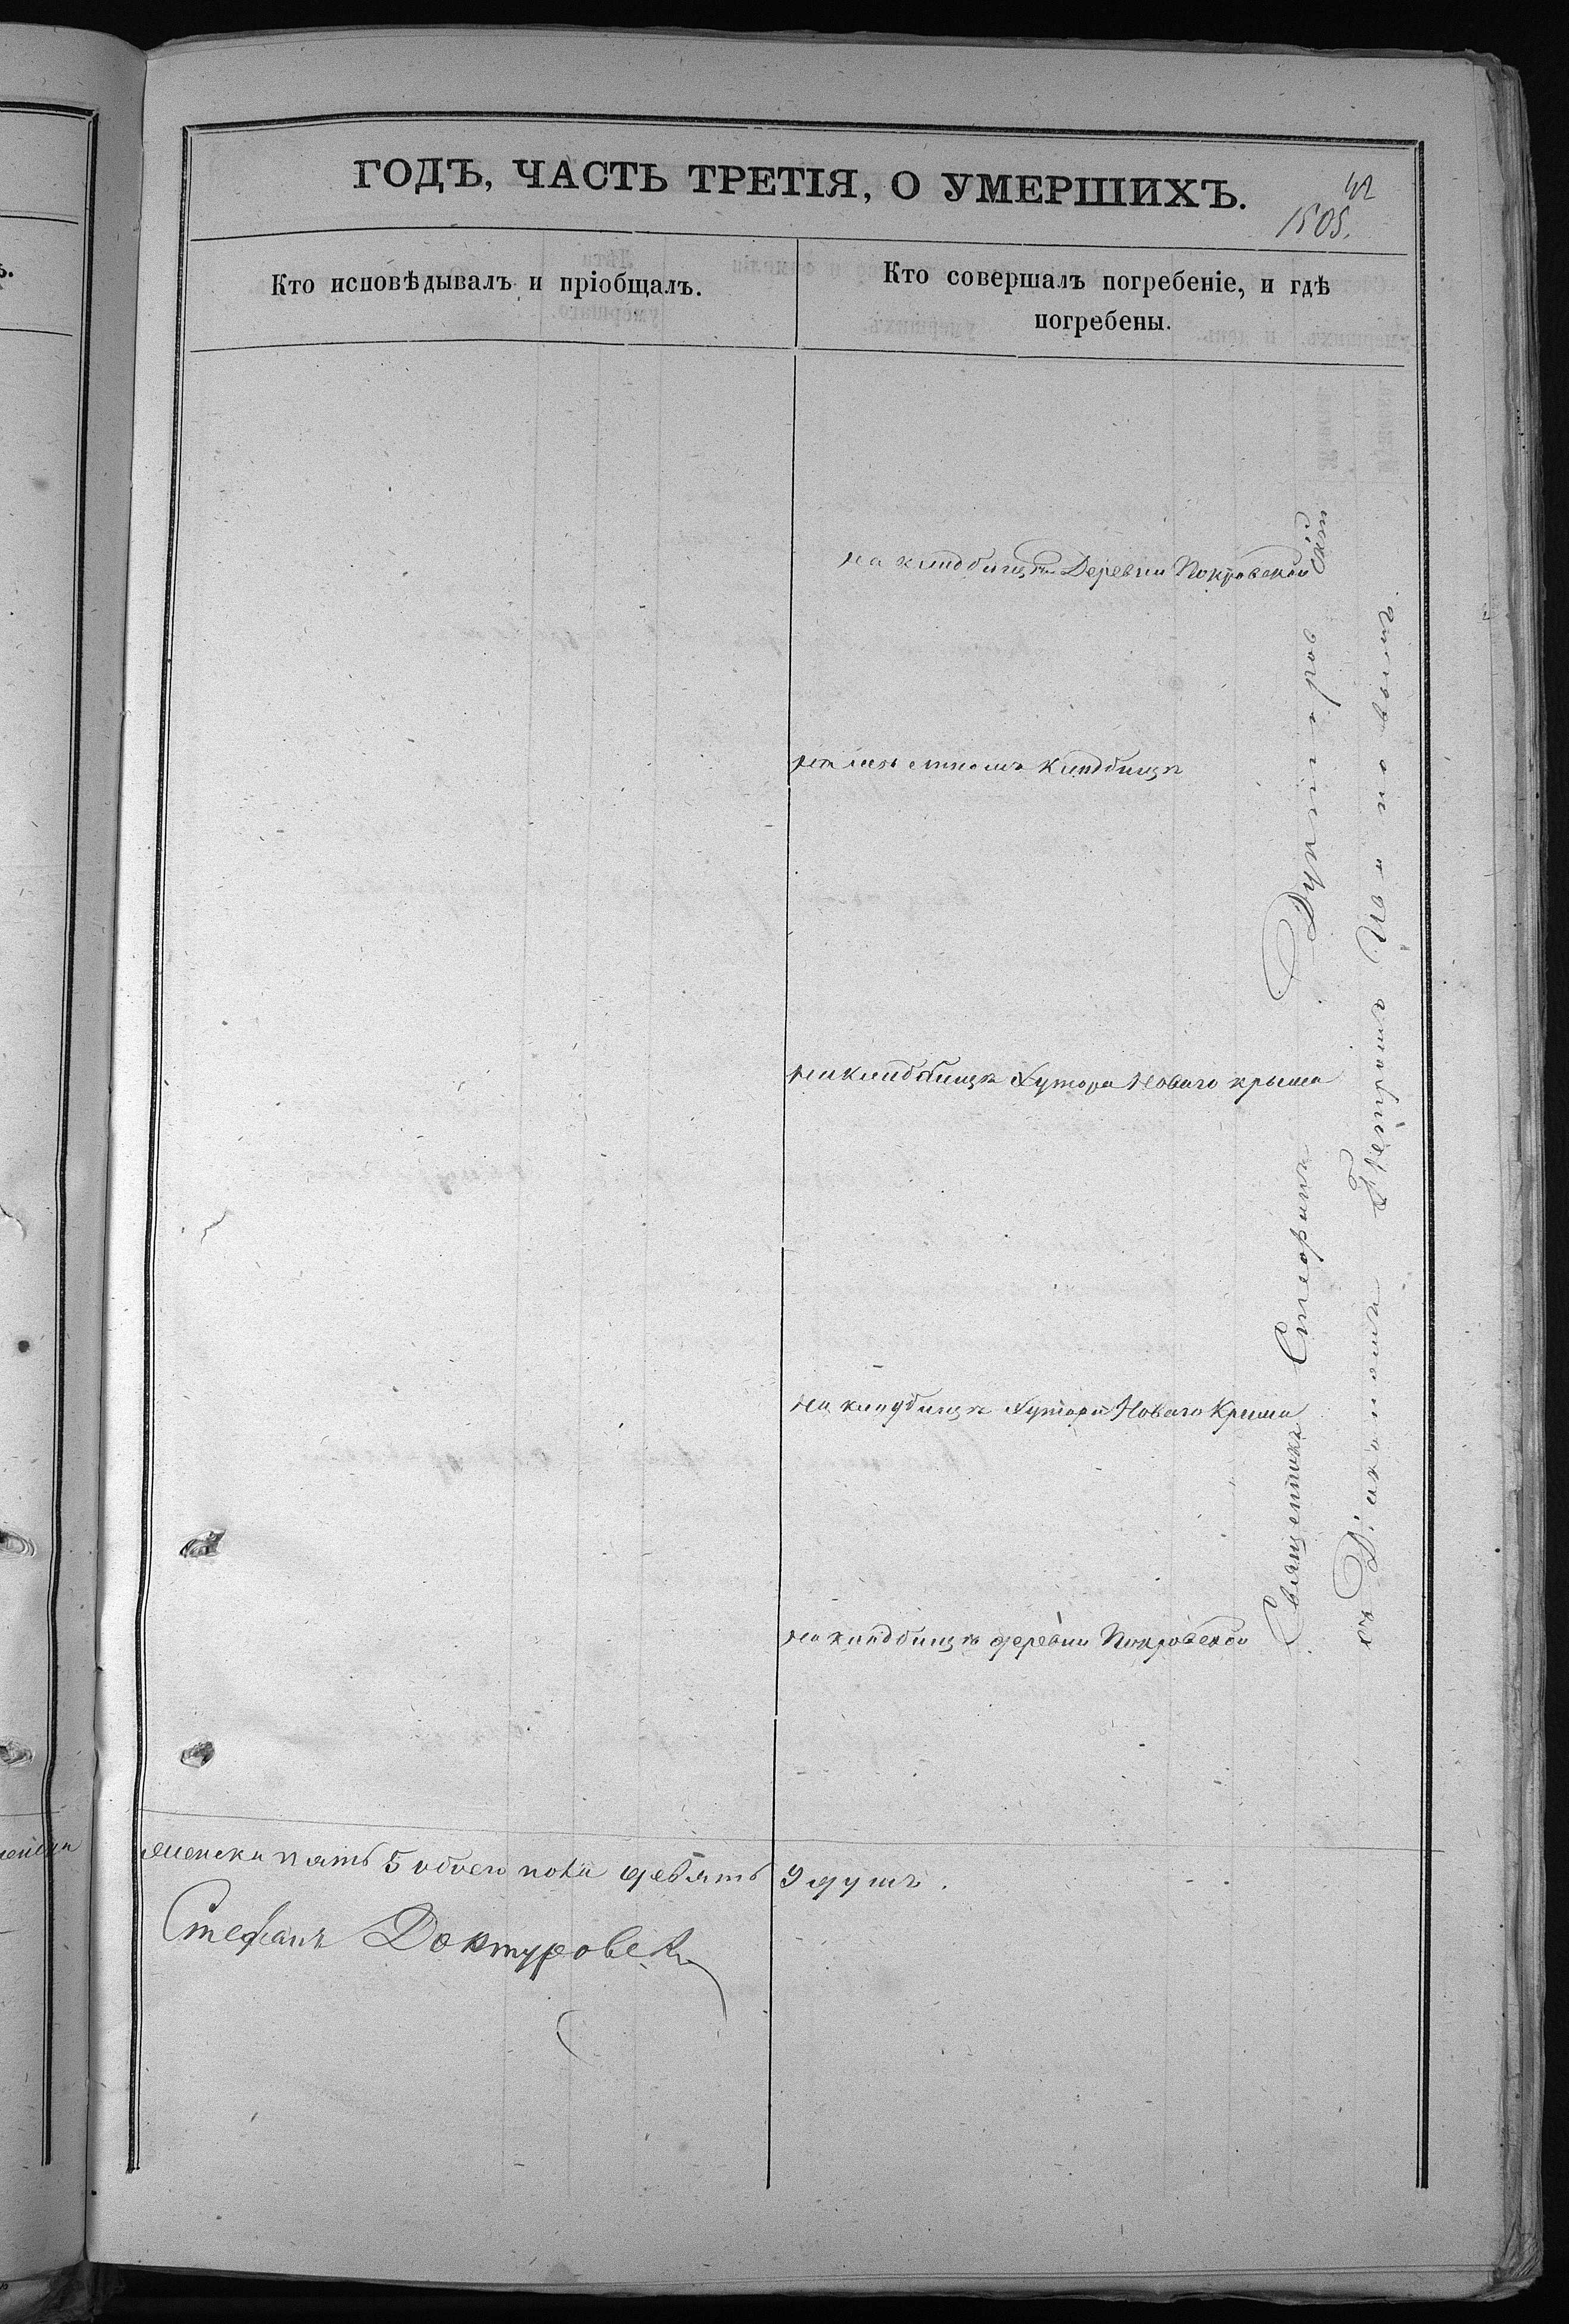 ГОДЪ, ЧАСТЬ ТРЕТІЯ, О УМЕРШИХЪ.
42
1505.
Кто исповѣдывалъ и пріобщалъ.
Кто совершалъ погребеніе, и гдѣ
погребены.
на кладбищѣ Деревни Покровской
на мѣстномъ кладбищѣ
на кладбищѣ Хутора Новаго крыма
на кладбищѣ Хутора Новаго Крыма
на кладбищѣ деревни Покровской
Священникъ Стефанъ Доктуров
съ Діакономъ Петромъ Ивановымъ.
женска пять 5 обоего пола девять 9 душъ.
Стефанъ Доктуровск